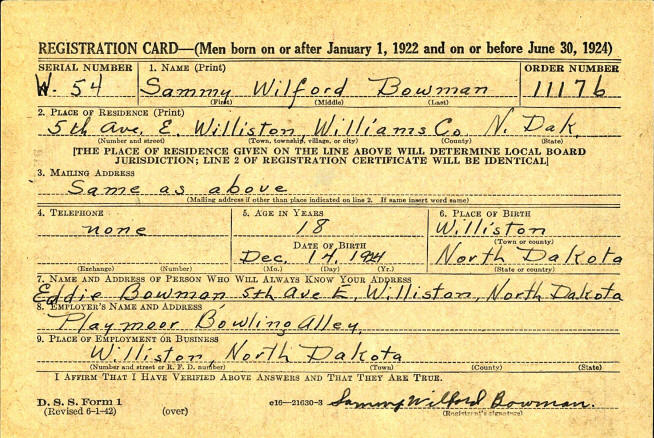 REGISTRATION CARD—(Men born on or after January 1, 1922 and on or before June 30, 1924)
SERIAL NUMBER 1. NAME (Print) ORDER NUMBER
W. 54 Sammy Wilford Bowman 11176
(First) (Middle) (Last)
2. PLACE OF RESIDENCE (Print)
5th Ave. E. Williston, Williams Co N. Dak.
(Number and street) (Town, township, village, or city) (County) (State)
[THE PLACE OF RESIDENCE GIVEN ON THE LINE ABOVE WILL DETERMINE LOCAL BOARD
JURISDICTION; LINE 2 OF REGISTRATION CERTIFICATE WILL BE IDENTICAL]
3. MAILING ADDRESS
Same as above
(Mailing address if other than place indicated on line 2. If same insert word same)
4. TELEPHONE 5. AGE IN YEARS 6. PLACE OF BIRTH
none 18 Williston
(Town or county)
DATE OF BIRTH
Dec. 14, 1924 North Dakota
(Exchange) (Number) (Mo.) (Day) (Yr.) (State or country)
7. NAME AND ADDRESS OF PERSON WHO WILL ALWAYS KNOW YOUR ADDRESS
Eddie Bowman 5th Ave E, Williston, North Dakota
8. EMPLOYER'S NAME AND ADDRESS
Playmoor Bowling Alley,
9. PLACE OF EMPLOYMENT OR BUSINESS
Williston, North Dakota
(Number and street or R. F. D. number) (Town) (County) (State)
I AFFIRM THAT I HAVE VERIFIED ABOVE ANSWERS AND THAT THEY ARE TRUE.
D. S. S. Form 1
(Revised 6-1-42) (over) c16—21630-3 Sammy Wilford Bowman.
(Registrant's signature)